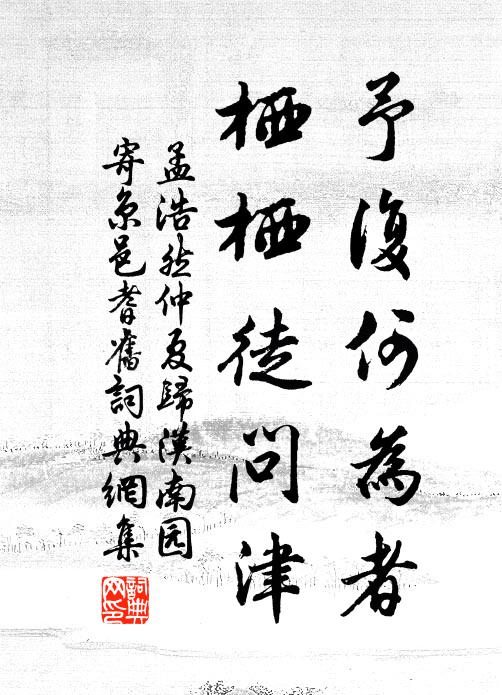 予復何為者
栖栖徒問津
孟浩然仲夏歸漢南园
寄京邑耆舊詞典網集
詞典网印